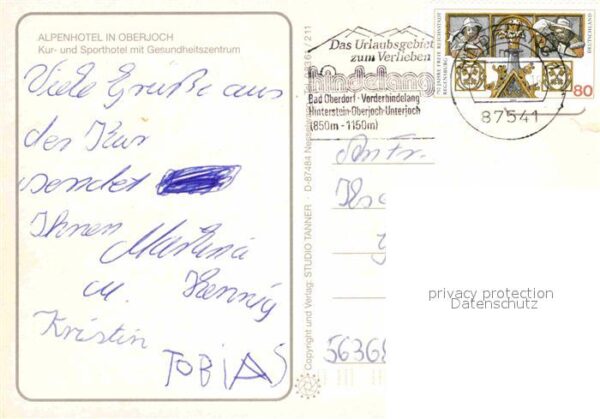 ALPENHOTEL IN OBERJOCH
Kur- und Sporthotel mit Gesundheitszentrum
Viele Grüße aus
der Kur
sendet
Ihnen Martina
u. Henning
Kristin
TOBIAS
Copyright und Verlag: STUDIO TANNER
D-87484
211
Das Urlaubsgebiet
zum Verlieben
hindelang
Bad Oberdorf - Vorderhindelang
Hinterstein-Oberjoch-Unterjoch
(850m - 1150m)
750 JAHRE FREIE REICHSSTADT
REGENSBURG
DEUTSCHLAND
80
87541
An Fr.
privacy protection
Datenschutz